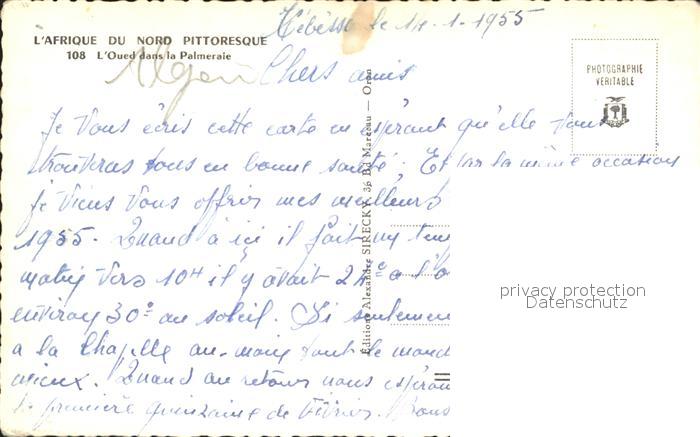 Tébéssa le 14-1-1955
L'AFRIQUE DU NORD PITTORESQUE
108 L'Oued dans la Palmeraie
Chers amis
PHOTOGRAPHIE
VÉRITABLE
Je vous écris cette carte en espérant qu'elle vous
trouveras tous en bonne santé; Et par la même occasion
je viens vous offrir mes meilleurs
1955. Quand à ici il fait un tem
matin vers 10H il y avait 24° a l'o
environ 30° au soleil. Si seulemen
a la Chapelle au-moins tout le mond
mieux. Quand au retour nous espéron
la première quinzaine de Février. Bons
Editions Alexandre SIRECKY, 36 Bd Marceau — Oran
privacy protection
Datenschutz